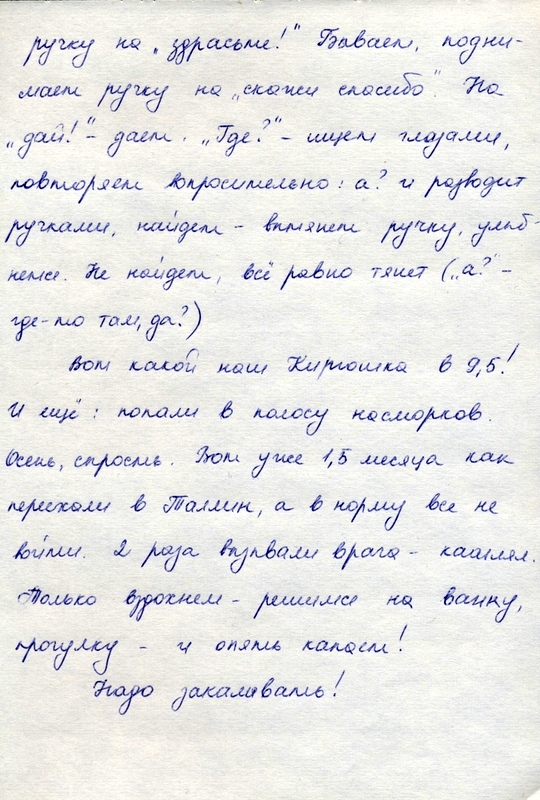 ручку на „здрасьте!" Бывает, подни-
мает ручку на „скажи спасибо". На
„дай!" - дает. „Где?" - ищет глазами,
повторяет вопросительно: а? и разводит
ручками, найдет - вытянет ручку, улыб-
нется. Не найдет, всё равно тянет („а?" -
где-то там, да?)
Вот какой наш Кирюшка в 9,5!
И ещё: попали в полосу насморков.
Осень, сырость. Вот уже 1,5 месяца как
переехали в Таллин, а в норму все не
войти. 2 раза вызывали врача - кашлял.
Только вздохнем - решимся на ванну,
прогулку - и опять капает!
Надо закаливать!